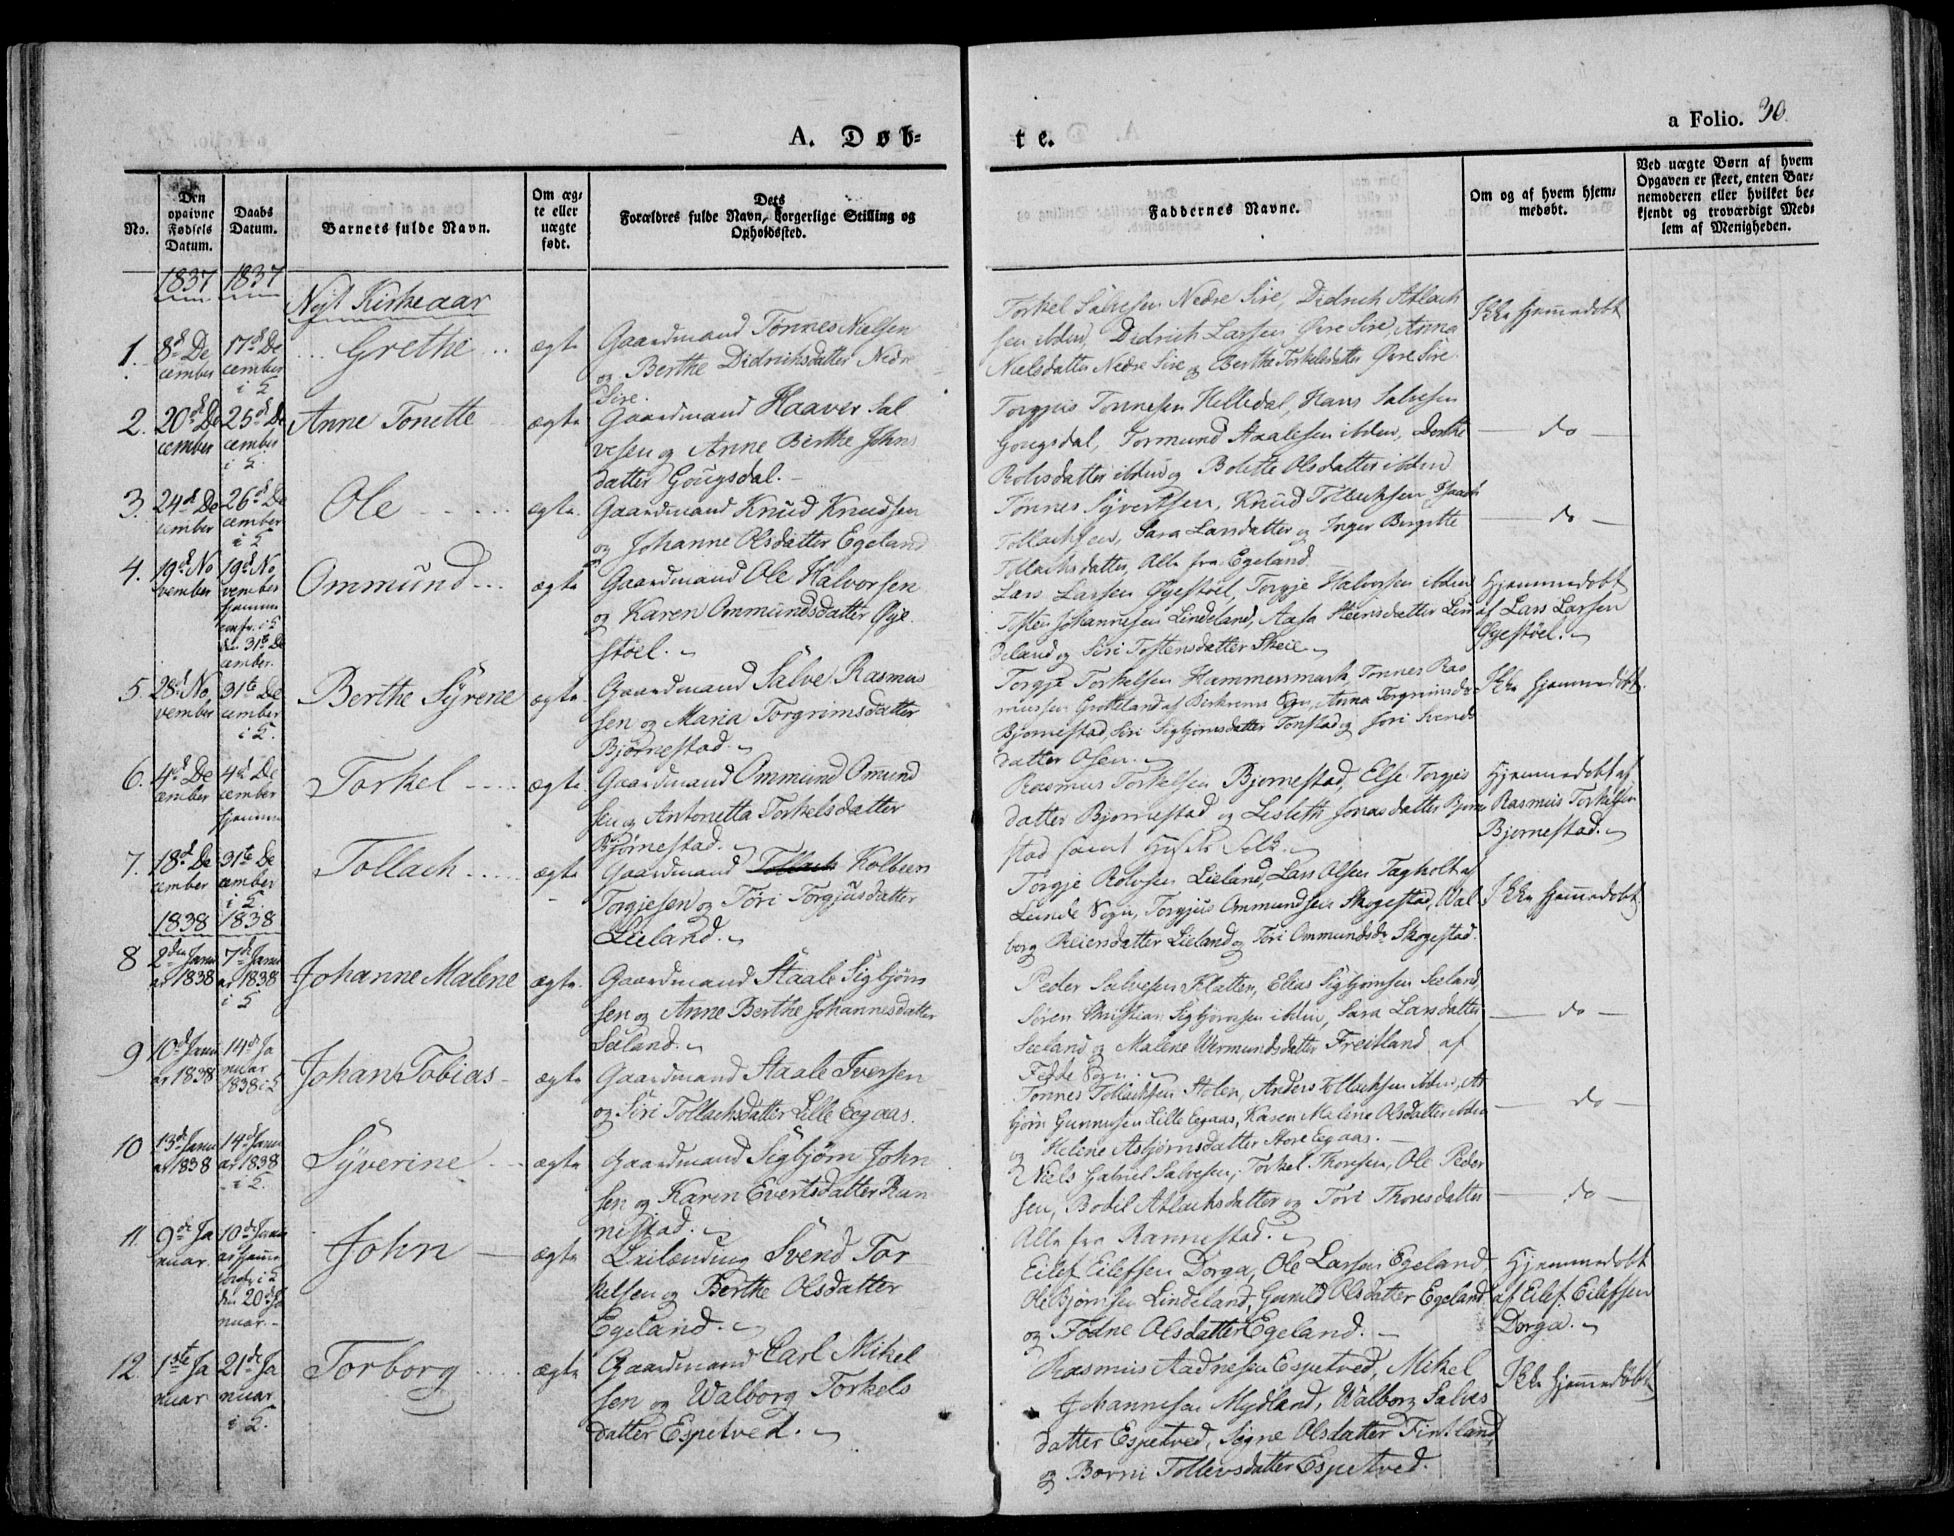 A. Døb=
te.
a Folio. 30.
No.
Den opgivne Fødsels Datum.
Daabs Datum.
Barnets fulde Navn.
Om æg=
te eller
uægte
født.
Dets
Forældres fulde Navn, borgerlige Stilling og
Opholdssted.
Faddernes Navne.
Om og af hvem hjem=
medøbt.
Ved uægte Børn af hvem
Opgaven er skeet, enten Bar=
nemoderen eller hvilket be=
kjendt og troværdigt Med=
lem af Menigheden.
1837 1837
Nyt Kirkeaar
1. 8d De
cember
17d De
cember
i K
Grethe
ægte
Gaardmand Tønnes Nielsen
og Berthe Didrichsdatter Nedre
Sire.
Torkel Salvesen Nedre Sire, Didrich Atlach
sen ibden, Didrich Larsen Øvre Sire, Anna
Nielsdatter Nedre Sire og Berthe Torkelsdatter Øvre Sire.
Ikke hjemmedøbt
2. 20d De
cember
25d De
cember
i K.
Anne Tonette
ægte
Gaardmand Haaver Sal
vesen og Anne Berthe Johns
datter Gougsdal.
Torgjuis Tønnesen Helledal, Hans Salvesen
Gougsdal, Tormund Aaalesen ibden, Dorthe
Rolvsdatter ibden og Bolette Olsdatter ibden
do
3. 24d De
cember
26d De
cember
i K
Ole
ægte.
Gaardmand Knud Knudsen
og Johanne Olsdatter Egeland
Tønnes Syvertsen, Knud Tollachsen, Isaach
Tollachsen, Sara Larsdatter og Inger Birgitte
Tollachsdatter, Alle fra Egeland.
do
4. 19d No
vember
19d No
vember
hjemme
confr. i K
den 31te De
cember.
Ommund
ægte
Gaardmand Ole Halvorsen
og Karen Ommundsdatter Øye
støel.
Lars Larsen Øyestøel, Torgje Halvorsen ibden
Tosten Johannesen Lindeland, Aasa Steensdatter Lin
deland og Siri Tostensdatter Skeie
Hjemmedøbt
af Lars Larsen
Øyestøel.
5. 28d No
vember
31te De
cember
i K.
Berthe Syrene
ægte
Gaardmand Salve Rasmus
sen og Maria Torgrimsdatter
Bjørnestad.
Torgje Torkelsen Hammersmark, Tønnes Ras
mussen Grokeland af Birkrems Sogn, Anna Torgrimsda
Bjørnestad, Siri Sigbjørnsdatter Tonstad og Jori Svends
datter Osen.
Ikke hjemmedøbt.
6. 4d De
cember
4d De
cember
hjemme
Torkel
ægte
Gaardmand Ommund Ommund
sen og Antonetta Torkelsdatter
Bjørnestad.
Rasmus Torkelsen Bjørnestad, Else Torgjeis
datter Bjørnestad og Lisbeth Jonasdatter Bjørne
stad samt Huusets Folk.
Hjemmedøbt af
Rasmus Torkelsen
Bjørnestad.
7. 18d De
cember
31te De
cember
i K.
Tollach
ægte
Gaardmand Tollach Kolbeen
Torgjesen og Tori Torgjusdatter
Lieland.
Torgje Rolvsen Lieland, Lars Olsen Tagholt af
Lunde Sogn, Torgjus Ommundsen Skogestad, Wal
borg Reiersdatter Lieland og Tori Ommundsdr Skogestad.
Ikke hjemmedøbt.
1838 1838
8 2den Janu
ar 1838
7de Janu
ar 1838
i K
Johanne Malene
ægte.
Gaardmand Staale Sigbjørn
sen og Anne Berthe Johannesdatter
Seeland.
Peder Salvesen Klatten, Elias Sigbjørnsen Seeland
Søren Christian Sigbjørnsen ibden, Sara Larsdatter
Seeland og Malene Wermundsdatter Freitland af
Fedde Sogn.
do
9 10d Janu
ar 1838
14de Ja
nuar
1838 i K
Johan Tobias
ægte
Gaardmand Staale Iversen
og Siri Tollachsdatter Lille Eegaas.
Tønnes Tollachsen Stolen, Anders Tollachsen ibden, As
bjørn Gunnusen Lille Eegaas, Karen Malene Olsdatter ibden
og Helene Asbjørnsdatter Store Eegaas.
do
10 13d Janu
ar 1838
14d Janu
ar 1838
i K.
Syverine
ægte
Gaardmand Sigbjørn John
sen og Karen Evertsdatter Ran
nestad.
Niels Gabriel Salvesen, Torkel Thoresen, Ole Peder
sen, Bodil Atlachsdatter og Tori Thoresdatter
Alle fra Rannestad.
do
11. 9de Ja
nuar.
10de Janu
ar hjemme
confr. i K
den 20d Ja
nuar.
John
ægte
Leilending Svend Tor
kelsen og Berthe Olsdatter
Egeland.
Eilef Eilefsen Dorga, Ole Larsen Egeland,
Ole Bjørnsen Lindeland, Gunild Olsdatter Egeland
og Fodne Olsdatter Egeland.
Hjemmedøbt
af Eilef Eilefsen
Dorga.
12. 1ste Ja
nuar
21de Ja
nuar.
i K.
Torborg
ægte
Gaardmand Carl Mikel
sen og Walborg Torkels
datter Espetved.
Rasmus Aadnesen Espetved, Mikel
Johannesen Mydland, Walborg Salves
datter Espetved, Signe Olsdatter Fintland
og Børni Tollevsdatter Espetved.
Ikke hjemmedøbt